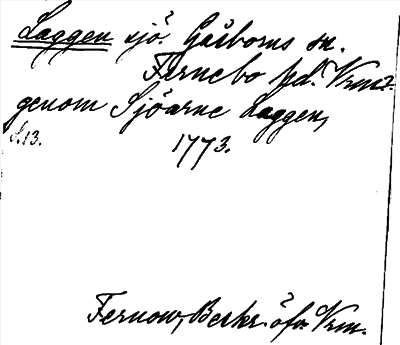 Laggen sjö. Gåsborns sn.
Fernebo hd. Vrml.
genom Sjöarne Laggen,
S. 13. 1773.
Fernow, Beskr. öfv. Vrm.